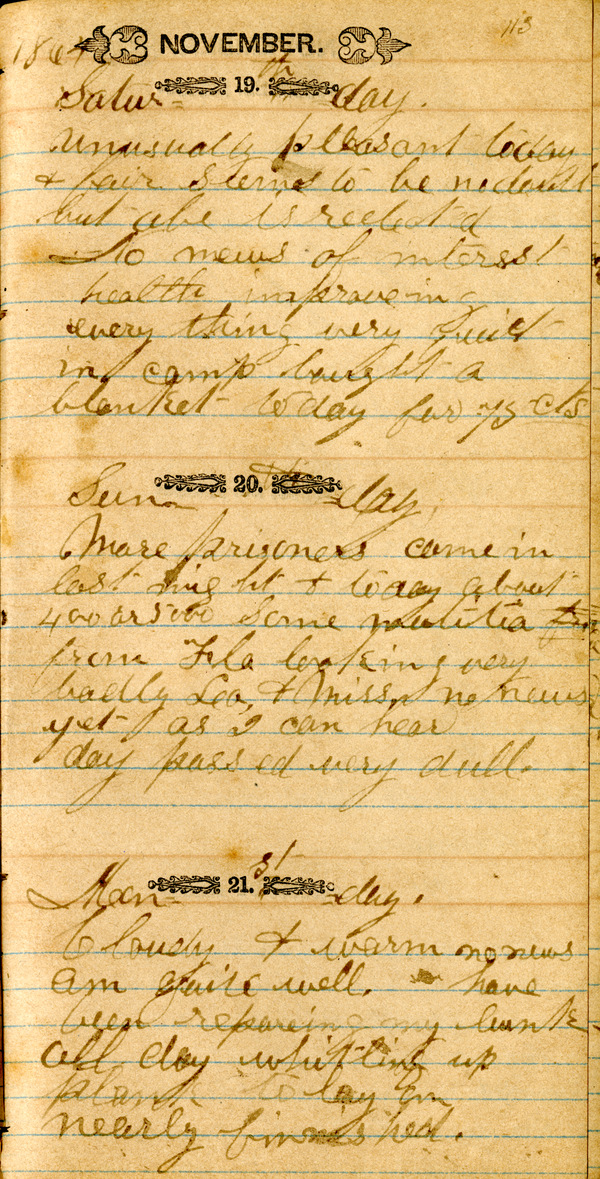 1864 NOVEMBER. 113
Satur= 19.th =day.
unusually pleasant today
& fair seems to be no doubt
but abe is reelected
No news of interest
health improveing
every thing very quiet
in camp bought a
blanket today for 75 cts
Sun= 20.th =day.
More prisoners came in
last night & today about
400 or 500 some militia
from Fla looking very
badly Geo, & Miss, no news
yet as I can hear
day passed very dull.
Mon= 21.st =day.
Cloudy & warm no news
am quite well. have
been repareing my bunk
all day whittling up
plank to lay on
nearly finnished.